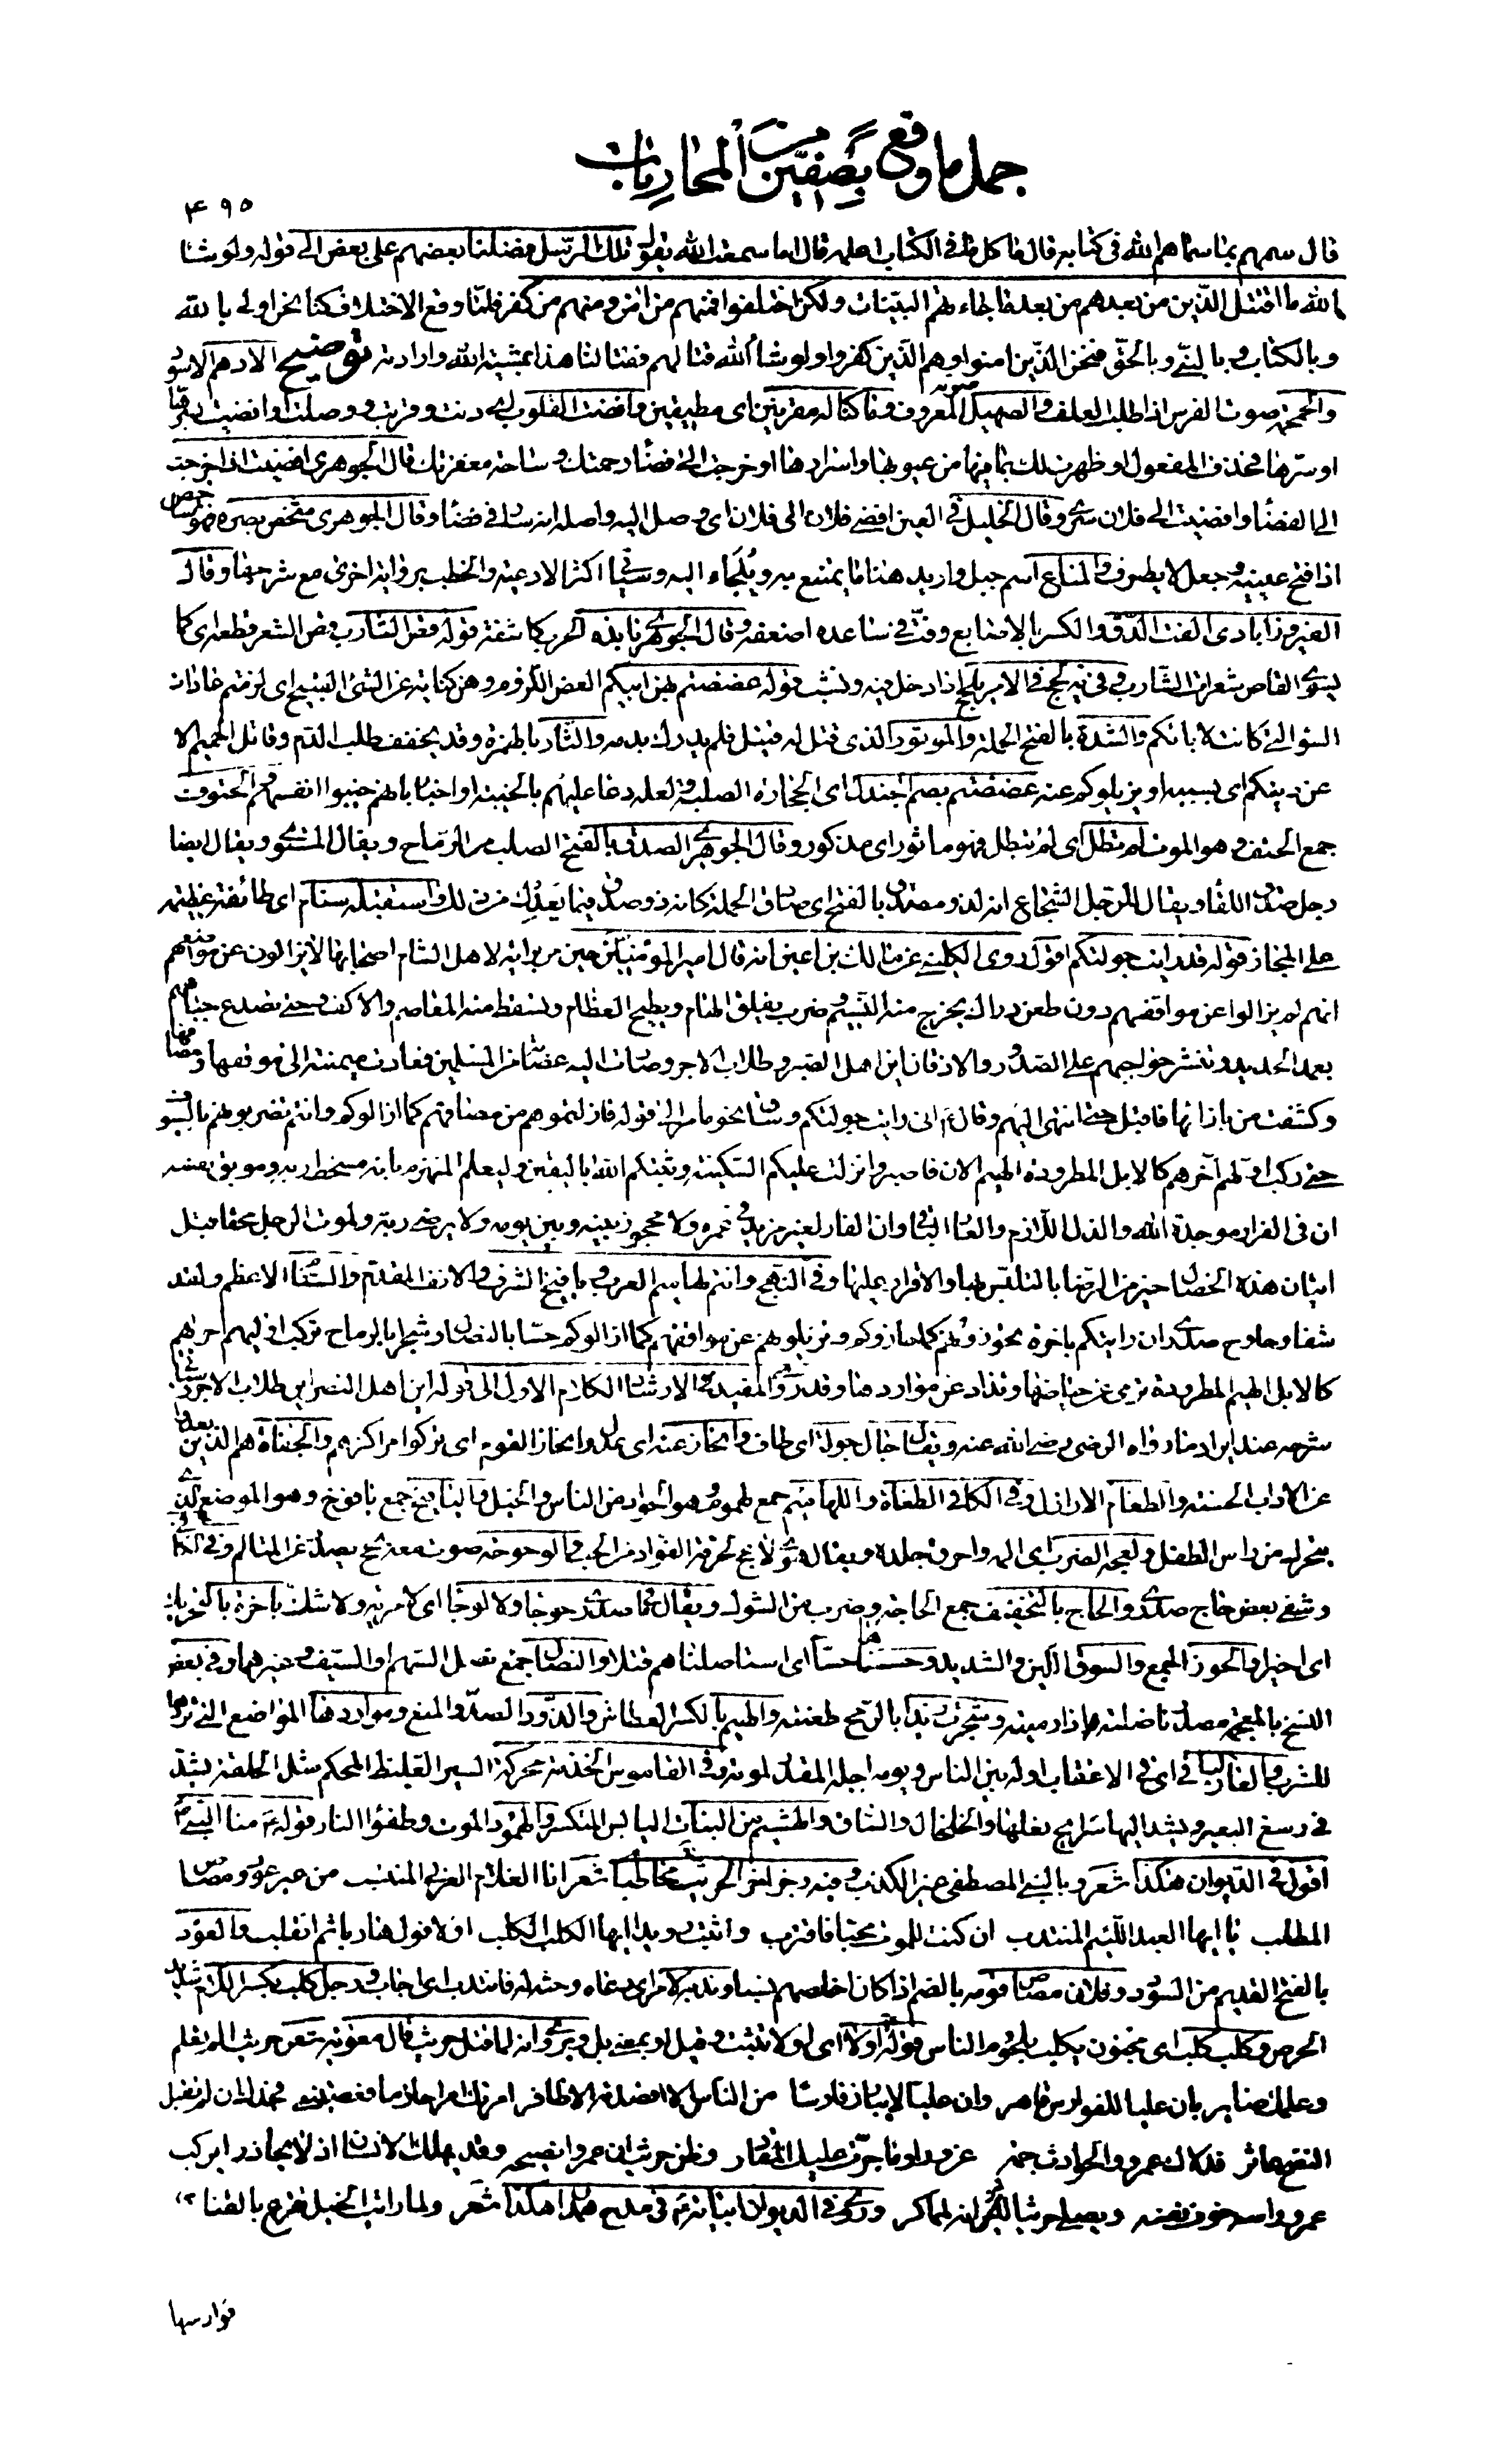 جمل ما وقع بصفين من المحاربات
۴۹۵
قال سمهم بما سماهم الله في كتابه قال ما كل ما في الكتاب اعلمه قال اما سمعت الله يقول تلك الرسل فضلنا بعضهم على بعض الى قوله ولو شاء
الله ما اقتتل الذين من بعدهم من بعد ما جاءتهم البينات ولكن اختلفوا فمنهم من امن ومنهم من كفر فلما وقع الاختلاف كنا نحن اولى بالله
وبالكتاب وبالنبي وبالحق فنحن الذين امنوا وهم الذين كفروا ولو شاء الله قتالهم فقتالنا هذا بمشية الله وارادته توضيح الادهم الاسود
والحمحمة صوت الفرس اذا طلب العلف والصهيل صوته المعروف وما كنا له مقرنين اى مطيقين وافضت القلوب اى دنت وقربت ووصلت او افضيت
او سترها فحذف المفعول او ظهرت لك بما فيها من عيوبها واسرارها او خرجت الى فضاء رحمتك وساحة مغفرتك قال الجوهرى افضيت اذا خرجت
الى الفضاء وافضيت الى فلان سرى وقال الخليل في العين افضى فلان الى فلان اى وصل اليه واصله انه صار في فضائه وقال الجوهرى شخص بصره فهو شاخص
اذا فتح عينيه وجعل لا يطرف ومتالع اسم جبل واريد هنا ما يمتنع به ويلجاء اليه وسياتى اكثر الادعية والخطب برواية اخرى مع شرحها وقال
الفيروزابادى الفت الدق والكسر بالاصابع وفت في ساعده اضعفه وقال الجوهرى نابذه الحرب كاشفه قوله وقص الشارب قص الشعر قطعه اى كما
يسوى القاص شعرات الشارب وفي فيه لحج في الامر يلحج اذا دخل فيه ونشب قوله عضضتم بهن ابيكم العض اللزوم وهن كناية عن الشئ القبيح اى لزمتم عادات
السوء التى كانت لابائكم والشدة بالفتح الحملة والموتور الذى قتل له قتيل فلم يدرك بدمه والثار بالهمزة وقد يخفف طلب الدم وقاتل الحميم لا
عن دينكم اى بسببه او يزيلوكم عنه عضضتم بصم الجندل اى الحجارة الصلبة ولعله دعا عليهم بالخيبة او اخبار بانهم خيبوا انفسهم والحتوف
جمع الحتف وهو الموت لم تطل اى لم تبطل فهو ماثور اى مذكور وقال الجوهرى الصدق بالفتح الصلب من الرماح ويقال المستوى ويقال ايضا
رجل صدق اللقاء ويقال للرجل الشجاع انه لذو مصدق بالفتح اى صادق الحملة كانه ذو صدق فيما يعدك من ذلك واستقبله سنام اى طائفة عظيمة
على المجاز قوله قد رايت جولتكم اقول روى الكلينى عن مالك بن اعين انه قال امير المؤمنين حين مر براية لاهل الشام اصحابها لا يزالون عن مواضعهم
انهم لن يزالوا عن مواقفهم دون طعن دراك يخرج منه النسيم وضرب يفلق الهام ويطيح العظام ويسقط منه المعاصم والاكف حتى تصدع جباههم
بعمد الحديد وتنثر حواجبهم على الصدور والاذقان اين اهل الصبر وطلاب الاجر وصارت اليه عصابة من المسلمين فعادت ميمنته الى موقفها ومصافها
وكشفت من بازائها فاقبل حتى انتهى اليهم وقال انى رايت جولتكم وساق نحو ما مر الى قوله فازلتموهم من مصافهم كما ازالوكم وانتم تضربونهم بالسيوف
حتى ركب اولهم آخرهم كالابل المطرودة الهيم الان فاصبروا نزلت عليكم السكينة وثبتكم الله باليقين وليعلم المنهزم بانه مسخط ربه وموبق نفسه
ان في الفرار موجدة الله والذل اللازم والعار الباقى وان الفار لغير مزيد في عمره ولا محجوز بينه وبين يومه ولا يرضى ربه ولموت الرجل محقا قبل
اتيان هذه الخصال خير من الرضا بالتلبس بها والاقرار عليها وفي النهج وانتم لهاميم العرب ويافيخ الشرف والانف المقدم والسنام الاعظم ولقد
شفا وحاوح صدرى ان رايتكم باخرة تحوزونهم كما حازوكم وتزيلوهم عن مواقفهم كما ازالوكم حسا بالنضال وشجرا بالرماح تركب اوليهم اخراهم
كالابل الهيم المطرودة ترمى عن حياضها وتذاد عن مواردها وقد روى المفيد في الارشاد الكلام الاول الى قوله اين اهل النصر اين طلاب الاجر وسياتى
شرحه عند ايراد ما رواه الرضى رضى الله عنه ويقال جال جولة اى طاف وانحاز عنه اى عدل وانحاز القوم اى تركوا مراكزهم والجفاة هم الذين بعدوا
عن الاداب الحسنة والطغام الاراذل وفي الكافى الطغاة واللهاميم جمع لهموم وهو الجواد من الناس والخيل واليافيخ جمع يافوخ وهو الموضع الذى
يتحرك من راس الطفل ولعجه الضرب اى المه واحرق جلده ويقال هوى لاعج لحرقة الفؤاد من الحب والوحوحة صوت معه بحح يصدر عن المتالم وفي الكافى
وشفى بعض حاج صدرى والحاج بالتخفيف جمع الحاجة وضرب من الشوك ويقال ما في صدرى حوجا ولا لوجا اى لا مرية ولا شك باخرة بالتحريك
اى اخيرا والحوز الجمع والسوق اللين والشديد وحسسناهم حسا اى استاصلناهم قتلا والنضال جمع نصل السهم والسيف وغيرهما وفي بعض
النسخ بالمعجمة مصدر ناضلته اذا راميته وشجرت زيدا بالرمح طعنته والهيم بالكسر العطاش والذود الصد والمنع ومواردها المواضع التى تردها
للشرب والغار الباقى اى في الاعقاب او له بين الناس ويومه اجله المقدر لموته وفي القاموس الخدمة محركة السير الغليظ المحكم مثل الحلقة يشد
في رسغ البعير ويشد اليها سرايح نعلها والخلخال والساق والهشيم من النبات اليابس المتكسر والهمود الموت وطفؤ النار قوله منا النبى
اقول في الديوان هكذا شعر وبالنبى المصطفى غير الكذب وفيه رجز اخر لحريث مخاطبا شعر انا الغلام العربى المنتسب من خير عود ومصاص
المطلب يا ايها العبد اللئيم المنتدب ان كنت للموت محبا فاقترب واثبت رويدا ايها الكلب الكلب او لا فول هاربا ثم انقلب والعود
بالفتح القديم من السؤدد وفلان مصاص قومه بالضم اذا كان اخلصهم نسبا وندبه لامر اى دعاه وحثه له فانتدب اى اجاب ورجل كلب بكسر اللام شديد
الحرص وكلب كلب اى مجنون يكلب بلحوم الناس قوله او لا اى او لا تثبت وقيل او بمعنى بل وروى انه لما قتل حريث قال معوية شعر حريث الم تعلم
وعلمك ضاير بان عليا للفوارس قاهر وان عليا لا يبارز فارسا من الناس الا اقصدته الاظافر امرتك امرا حازما فعصيتنى فجدك ان لم تقبل
النصح عاثر فدلاك عمرو والحوادث جمة غرورا وما جرت عليك المقادر وظن حريث ان عمرا نصيحه وقد يهلك الانسان اذ لا يحاذر ايركب
عمرو راسه خوف نفسه ويصلى حريثا انه لمماكر وروى في الديوان ابياتا له في مدح همدان هكذا شعر ولما رايت الخيل تقرع بالقنا
فوارسها